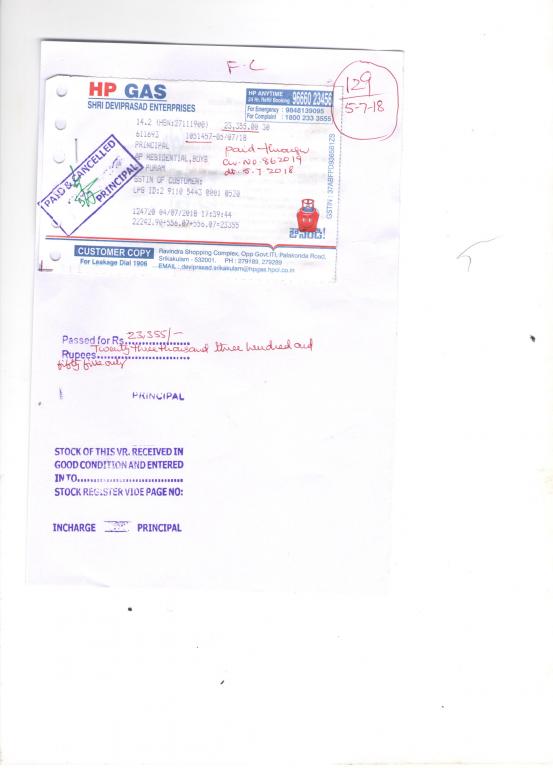 F-C
129
5-7-18
HP GAS
SHRI DEVIPRASAD ENTERPRISES
HP ANYTIME
24 Hr. Refill Booking 96660 23456
For Emergency : 9848139095
For Complaint : 1800 233 3555
14.2 (HSN:27111900) 23,355.00 30
611693 1051457-05/07/18
PRINCIPAL
AP RESIDENTIAL,BOYS
PURAM
GSTIN OF CUSTOMER:
LPG ID:2 9110 5443 0001 0520
124720 04/07/2018 17:39:44
22242.90+556.07+556.07=23355
paid through
Ch. No. 862019
dt. 5.7.2018
PAID & CANCELLED
PRINCIPAL
CUSTOMER COPY
For Leakage Dial 1906
Ravindra Shopping Complex, Opp Govt.ITI, Palakonda Road,
Srikakulam - 532001. PH : 279189, 279289
EMAIL : deviprasad.srikakulam@hpgas.hpcl.co.in
Passed for Rs. 23,355/-
Rupees Twenty three thousand three hundred and
fifty five only
PRINCIPAL
STOCK OF THIS VR. RECEIVED IN
GOOD CONDITION AND ENTERED
IN TO..............................
STOCK REGISTER VIDE PAGE NO:
INCHARGE PRINCIPAL